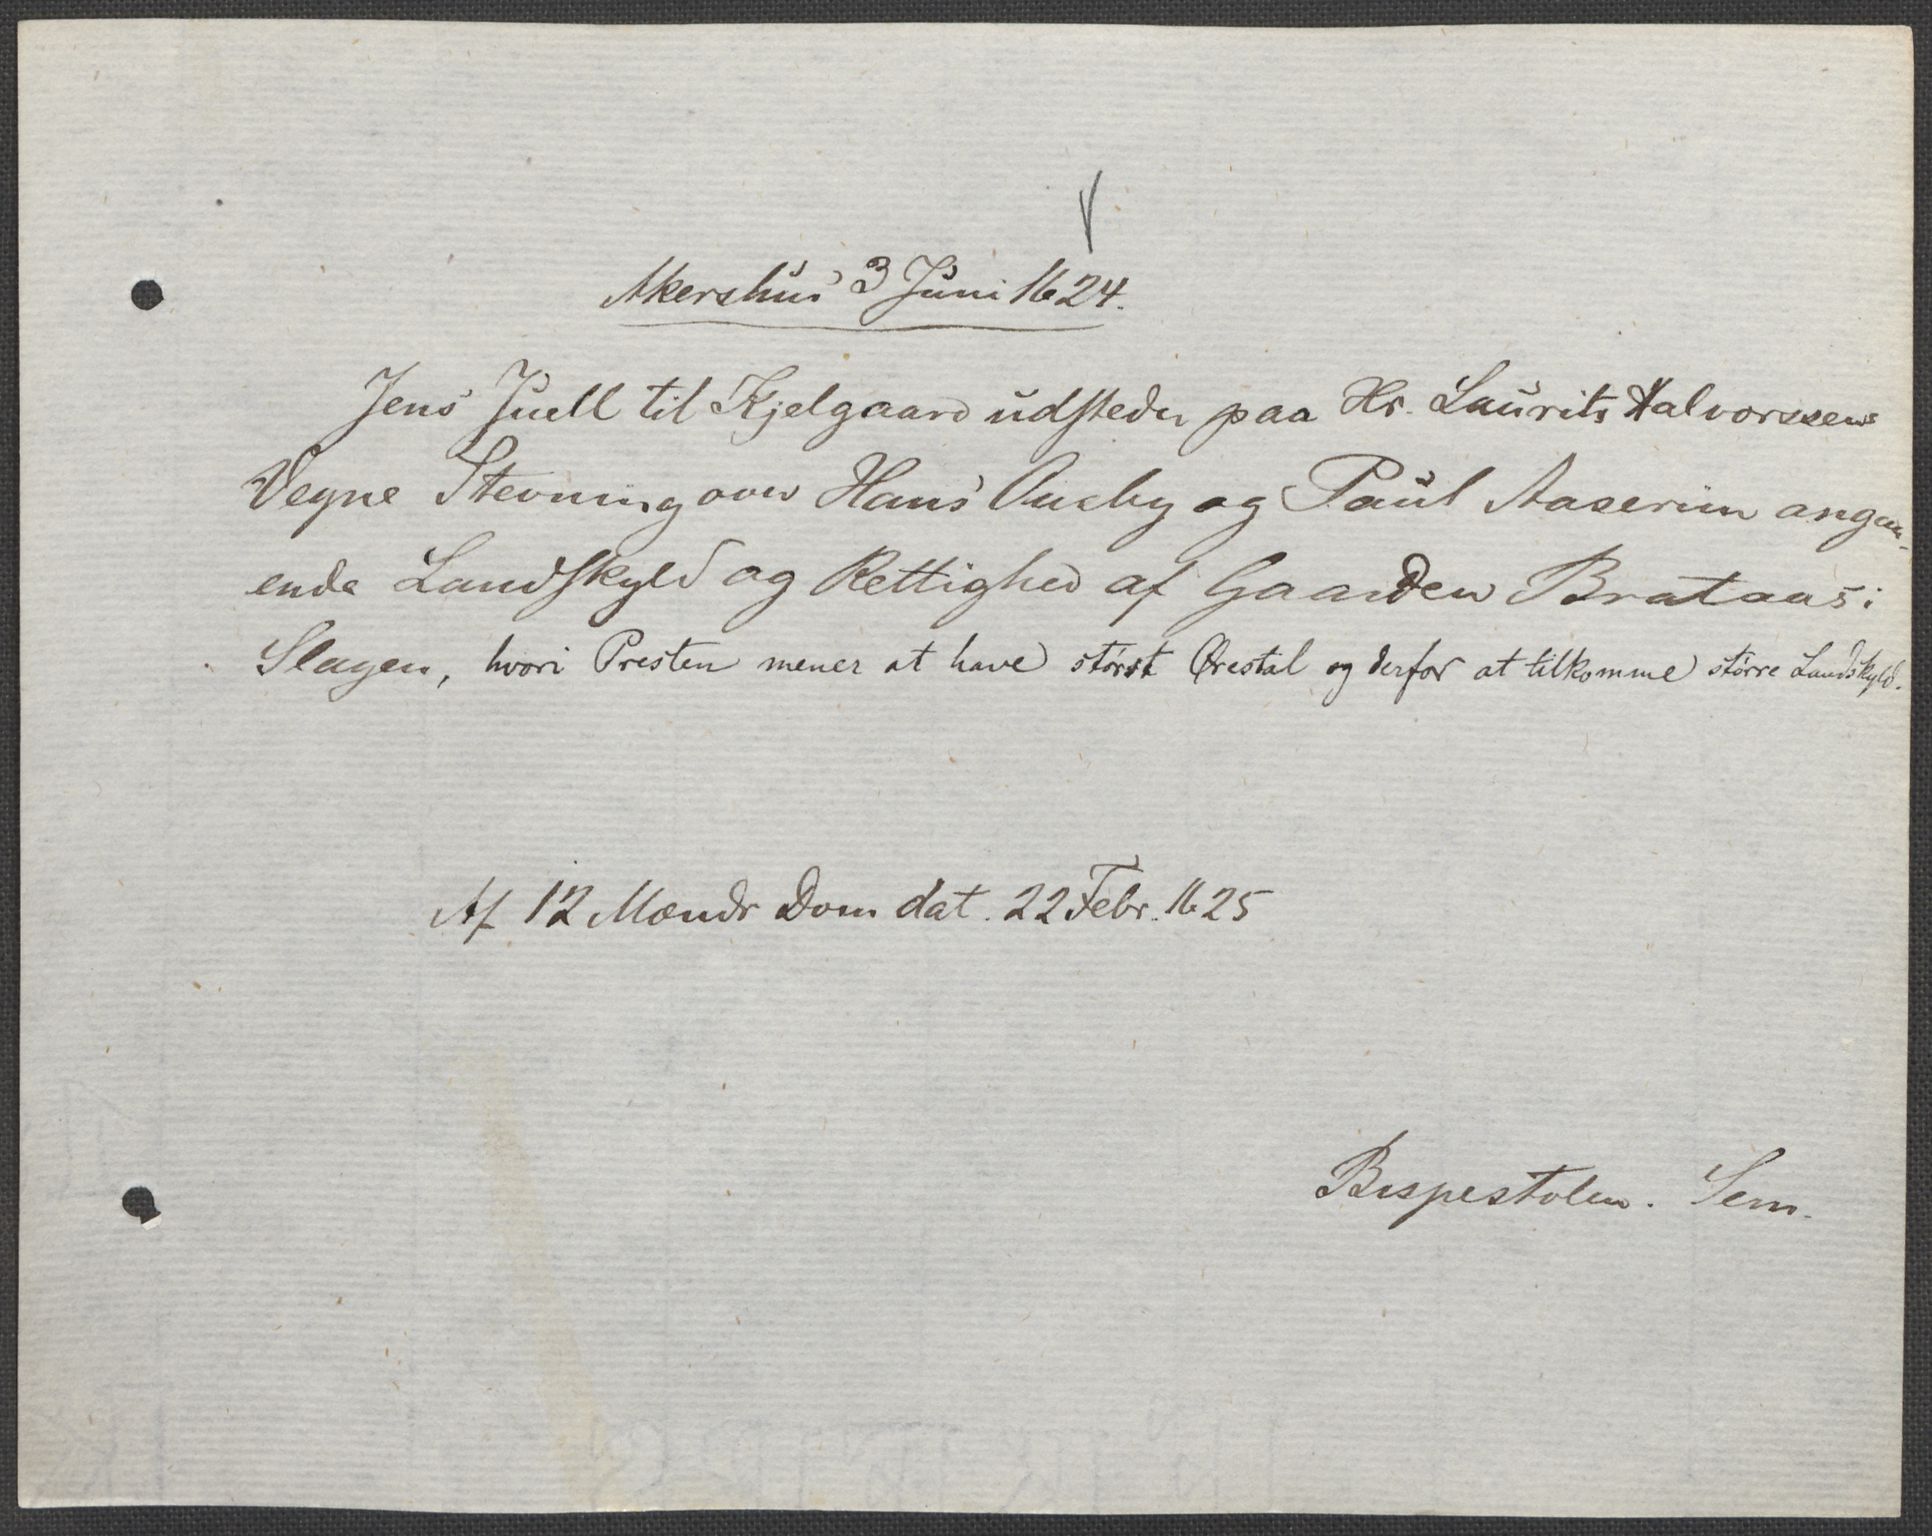 Akershus 3 Juni 1624.
Jens Juell til Kjelgaard udsteder paa Hr. Laurits Halvorssens
Vegne Stevning over Hans Aueby og Paul Aaserum angaa-
ende Landskyld og Rettighed af Gaarden Brataas i
Slagen, hvori Presten mener at have størst Ørestal og derfor at tilkomme større Landskyld.
Af 12 Mænds Dom dat. 22 Febr. 1625
Bispestolen. Sem.